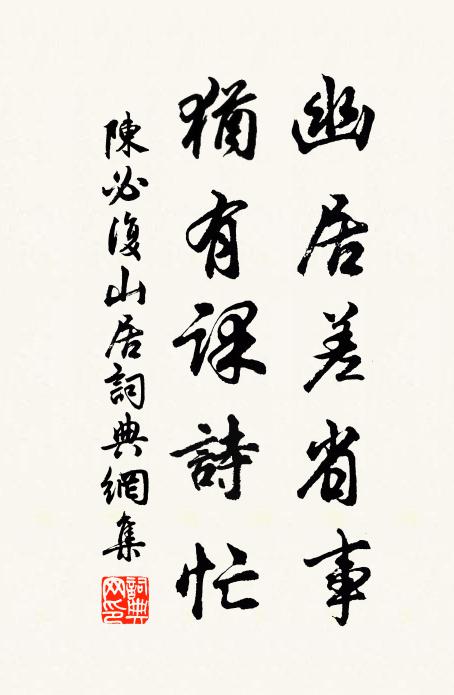 幽居差省事
猶有課詩忙
陳必復山居詞典網集
詞典網印